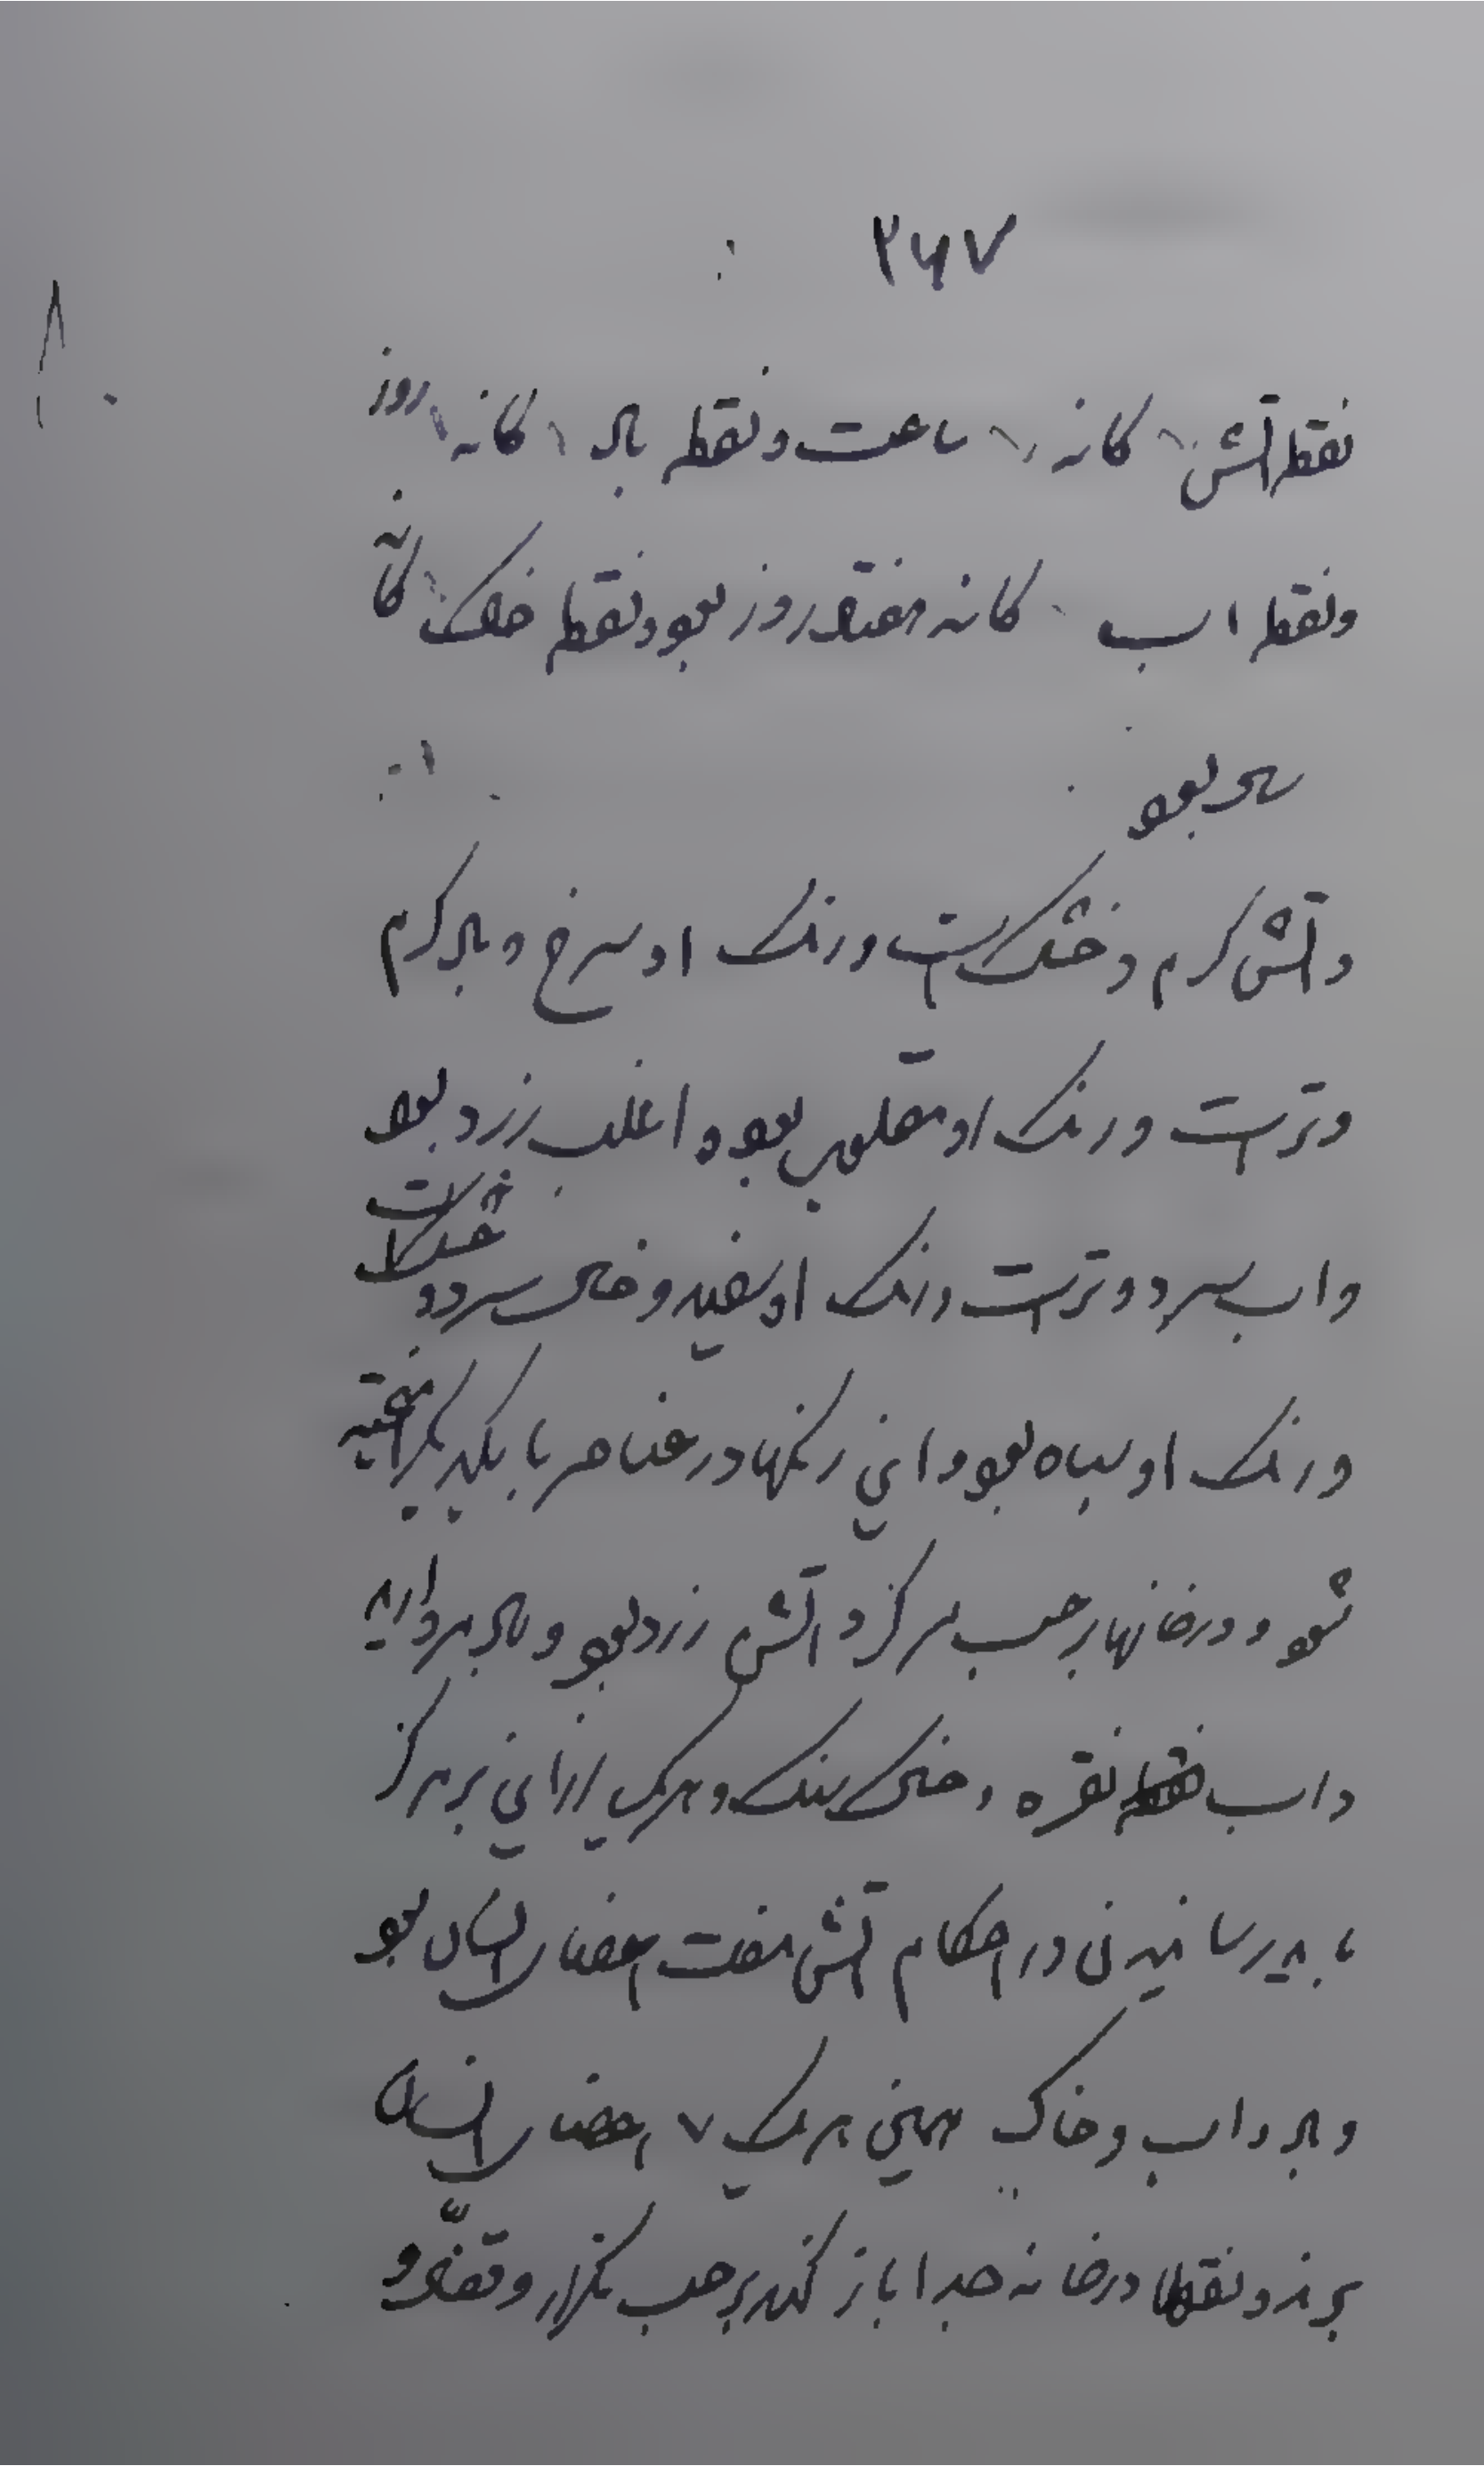 ۲۶۷
نقطه آتش یکانه ساعت و نقطه باد یکانه روز
و نقطه اب یکانه هفته روز بود و نقطه خاک یکانه
بود
و آتش گرم و خشک است و رنک او سرخ و باد گرم
و تر است و رنک او مقلوب بود و اغلب زرد بود
و اب سرد و تر است و رنک او سفید و خاک سرد و خشک است
و رنک او سیاه بود و این رنگها در عناصر با یکدیگر امیخته
شود و در خانها بر حسب مرکز و آتش زرد بود و باد مروارید
و اب نقره و خاک سنک و هریک از این بر مرکز
باید رسانیدنی در احکام آتش هفت اعضا انسان بود
و باد و اب و خاک همین هریک ۷ اعضا انسان
و نقطها در خانه جدا باز کنند بر حسب تکرار و